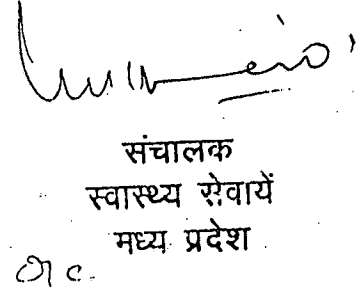 संचालक
स्वास्थ्य सेवायें
मध्य प्रदेश